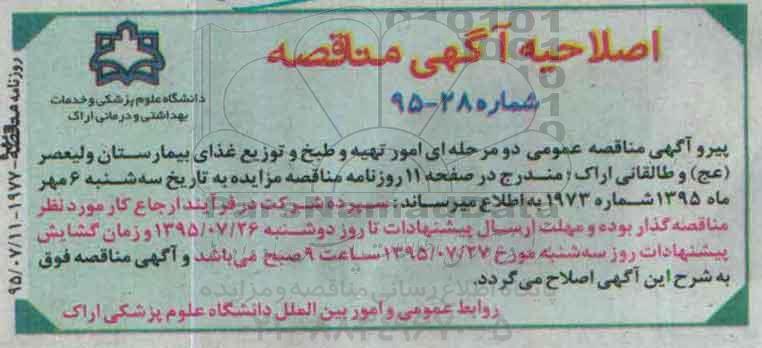 اصلاحیه آگهی مناقصه
شماره ۲۸-۹۵
دانشگاه علوم پزشکی و خدمات
بهداشتی و درمانی اراک
پیرو آگهی مناقصه عمومی دو مرحله ای امور تهیه و طبخ و توزیع غذای بیمارستان ولیعصر
(عج) و طالقانی اراک ؛ مندرج در صفحه ۱۱ روزنامه مناقصه مزایده به تاریخ سه شنبه ۶ مهر
ماه ۱۳۹۵ شماره ۱۹۷۳ به اطلاع میرساند: سپرده شرکت در فرآیند ارجاع کار مورد نظر
مناقصه گذار بوده و مهلت ارسال پیشنهادات تا روز دوشنبه ۱۳۹۵/۰۷/۲۶ و زمان گشایش
پیشنهادات روز سه شنبه مورخ ۱۳۹۵/۰۷/۲۷ ساعت ۹ صبح می باشد و آگهی مناقصه فوق
به شرح این آگهی اصلاح می گردد.
روابط عمومی و امور بین الملل دانشگاه علوم پزشکی اراک
روزنامه مناقصه - ۱۹۷۷ - ۹۵/۰۷/۱۱
ParsNamadData
پایگاه اطلاع رسانی مناقصه و مزایده